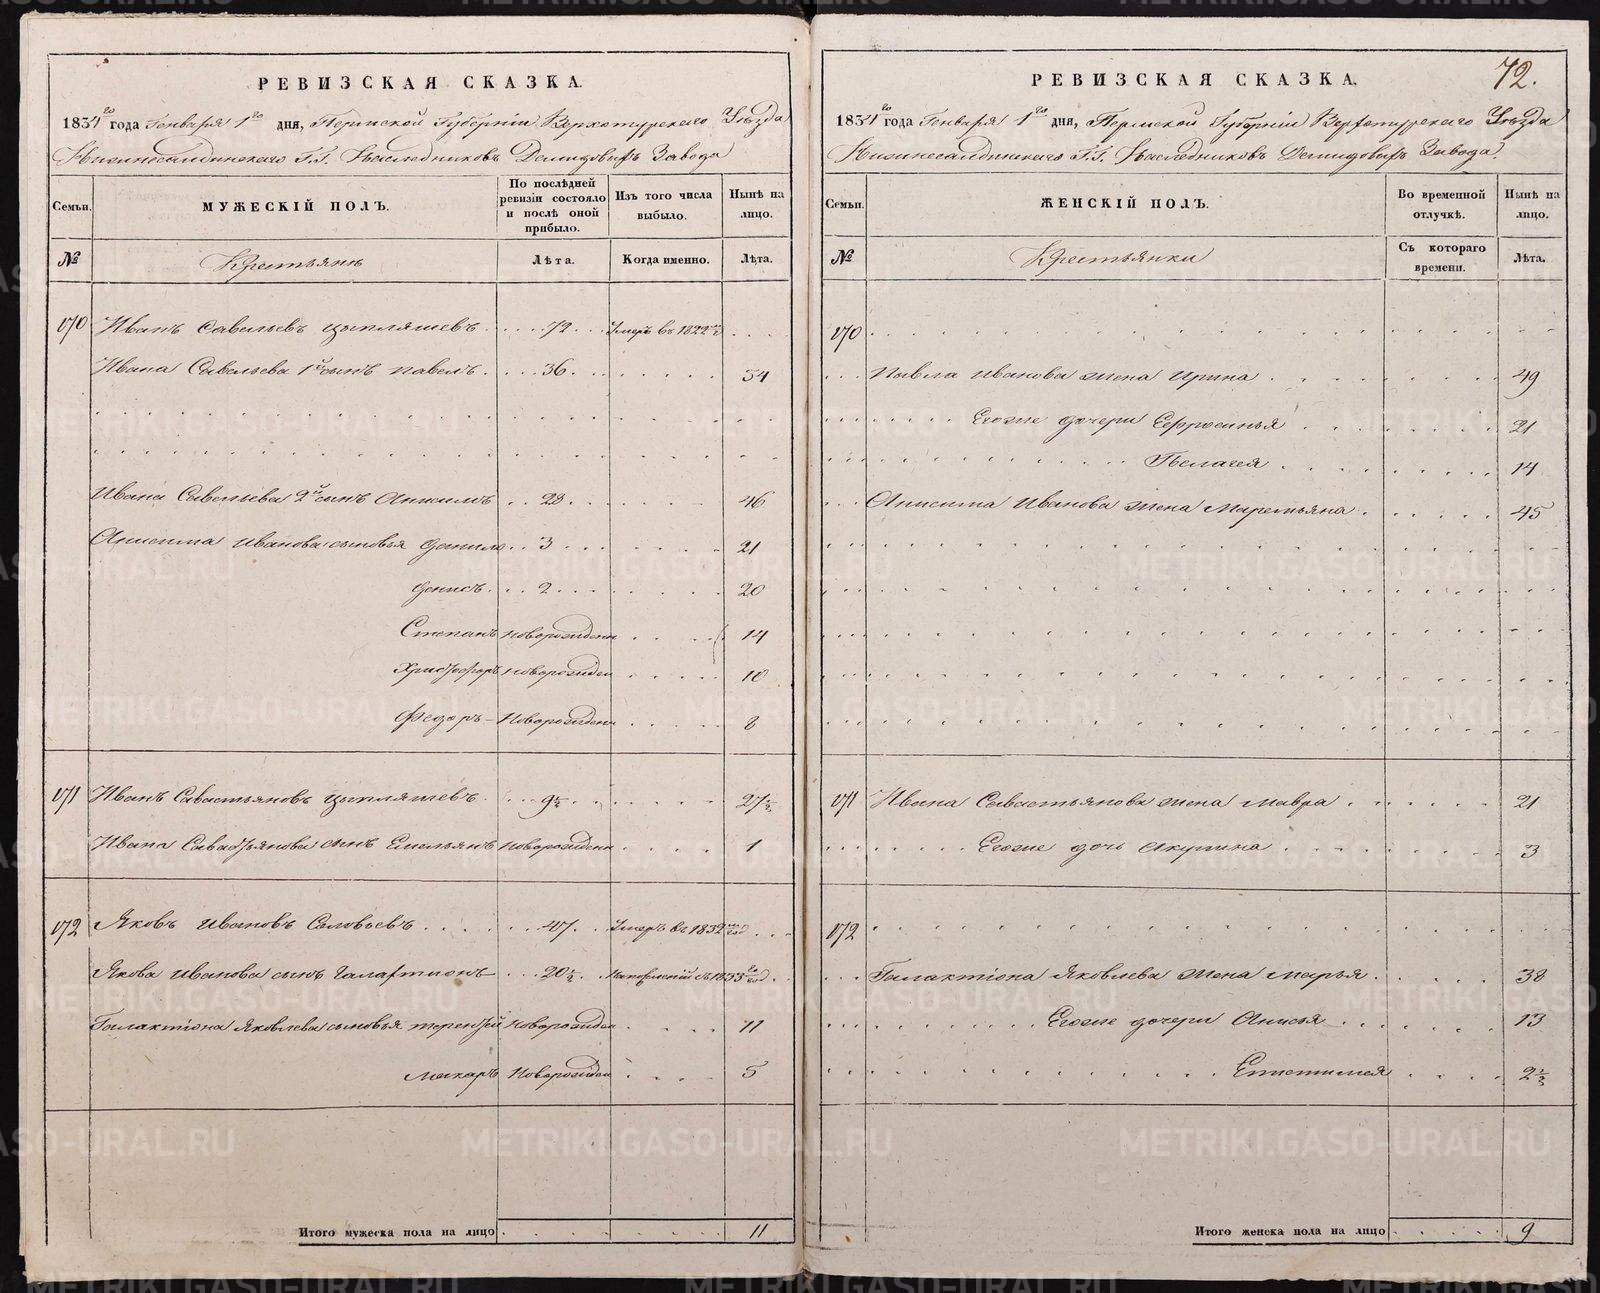 РЕВИЗСКАЯ СКАЗКА.
1834го года Генваря 1го дня, Пермской Губернiи Верхотурскаго Уѣзда
Нижнесалдинскаго Г.Г. Наслѣдниковъ Демидовыхъ Завода
Семьи.
МУЖЕСКІЙ ПОЛЪ.
По послѣдней ревизіи состояло и послѣ оной прибыло.
Изъ того числа выбыло.
Нынѣ на лицо.
№
Крестьянъ
Лѣта.
Когда именно.
Лѣта.
170 Иванъ Савельевъ Цыпляшевъ 72 Умеръ въ 1822
Ивана Савельева 1й сынъ Павелъ 36 54
Ивана Савельева 2й сынъ Анисимъ 28 46
Анисима Иванова сыновья Данило 3 21
Денисъ 2 20
Степанъ новорожденъ 14
Христофоръ новорожден 10
Федоръ - Новорожденъ 8
171 Иванъ Савастьяновъ Цыпляшевъ 9½ 27½
Ивана Савастьянова сынъ Емельянъ новорожденъ 1
172 Яковъ Ивановъ Соловьевъ 47 Умеръ въ 1832
Якова Иванова сынъ Галактионъ 20½
Галактiона Яковлева сыновья Терентей новорожден 11
Макаръ Новорожден 5
Итого мужеска пола на лицо 11
72.
РЕВИЗСКАЯ СКАЗКА.
1834го года Генваря 1го дня, Пермской Губернiи Верхотурскаго Уѣзда
Нижнесалдинскаго Г.Г. Наслѣдниковъ Демидовыхъ Завода.
Семьи.
ЖЕНСКІЙ ПОЛЪ.
Во временной отлучкѣ.
Нынѣ на лицо.
№
Крестьянки
Съ котораго времени.
Лѣта.
170
Павла Иванова жена Ирина 49
Егоже дочери Ефросинья 21
Пелагея 14
Анисима Иванова жена Маремьяна 45
171 Ивана Савастьянова жена Мавра 21
Егоже дочь Акулина 3
172
Галактiона Яковлева жена Марья 38
Егоже дочери Анисья 13
Епистимея 2½
Итого женска пола на лицо 9
METRIKI.GASO-URAL.RU